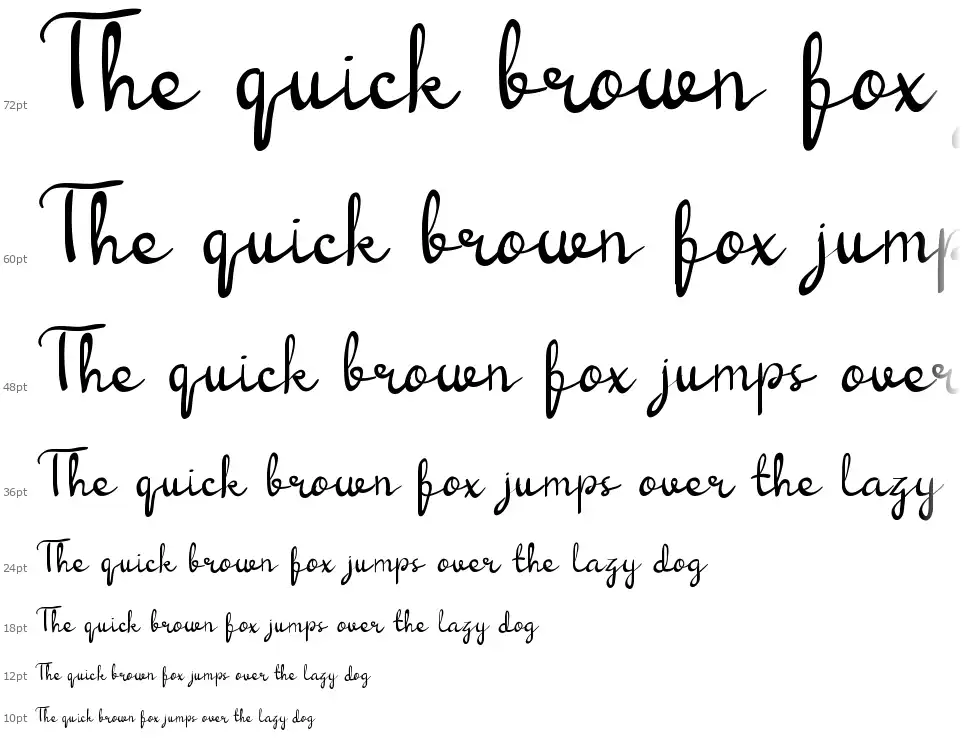 72pt The quick brown fox
60pt The quick brown fox jump
48pt The quick brown fox jumps over
36pt The quick brown fox jumps over the lazy
24pt The quick brown fox jumps over the lazy dog
18pt The quick brown fox jumps over the lazy dog
12pt The quick brown fox jumps over the lazy dog
10pt The quick brown fox jumps over the lazy dog